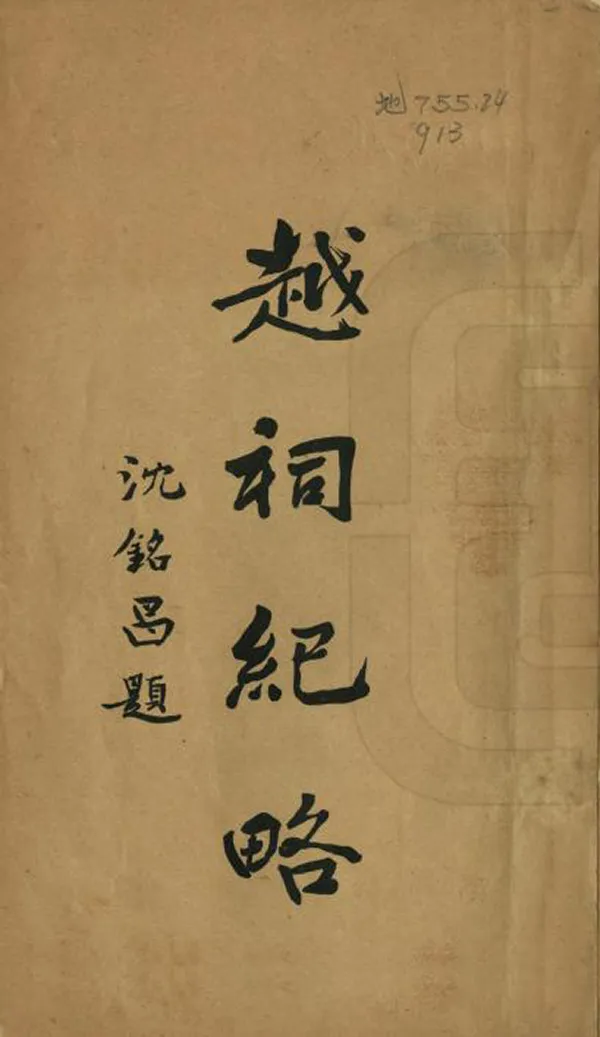 地755.24
913
越祠紀略
沈銘昌題